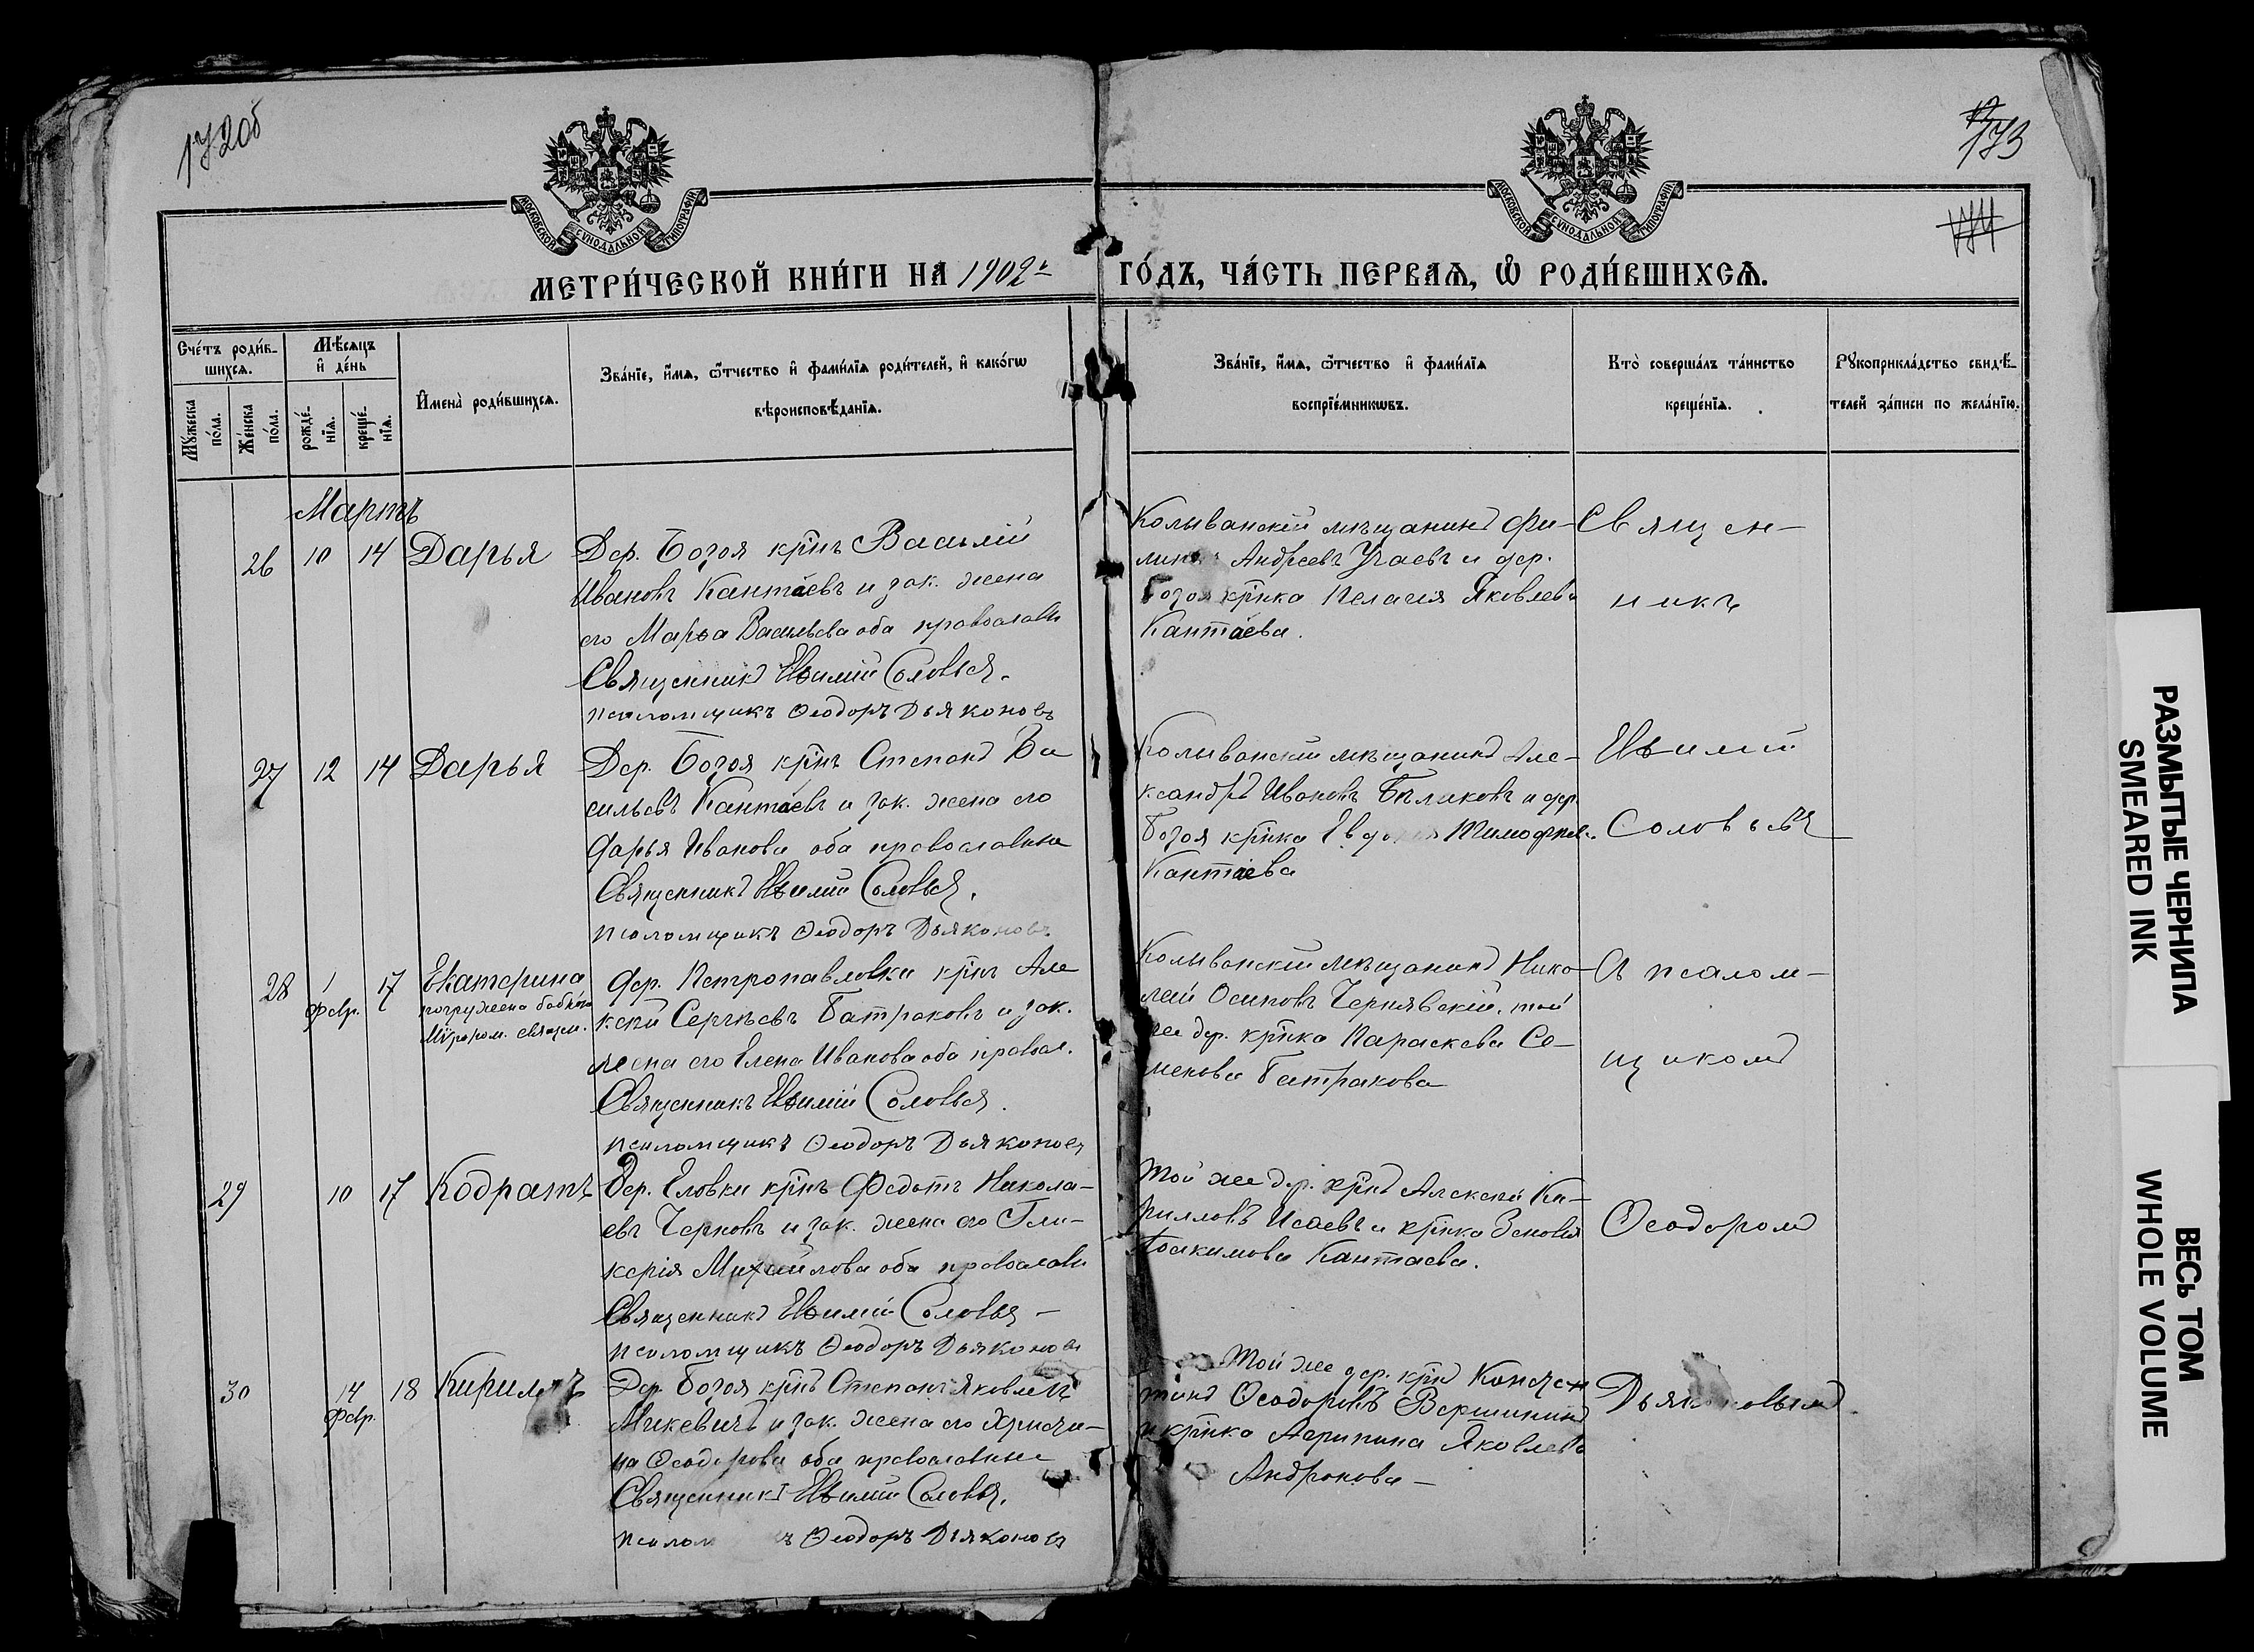 172об
173
174
МОСКОВСКОЙ СѴНОДАЛЬНОЙ ТИПОГРАФІИ
МОСКОВСКОЙ СѴНОДАЛЬНОЙ ТИПОГРАФІИ
МЕТРИ́ЧЕСКОЙ КНИ́ГИ НА 1902й ГО́ДЪ, ЧА́СТЬ ПЕ́РВАѦ, Ѽ РОДИ́ВШИХСѦ.
Сче́тъ роди́в-
шихсѧ.
Мѹ́жеска
по́ла.
Же́нска
по́ла.
Мѣ́сѧцъ
и҆ де́нь
рожде́-
нїѧ.
креще́-
нїѧ.
И҆мена̀ роди́вшихсѧ.
Зва́нїе, и҆́мѧ, ѻ҆́тчество и҆ фами́лїѧ роди́телей, и҆ како́гѡ
вѣроисповѣ́данїѧ.
Зва́нїе, и҆́мѧ, ѻ҆́тчество и҆ фами́лїѧ
воспрїе́мникѡвъ.
Кто̀ соверша́лъ та́инство
креще́нїѧ.
Рѹкоприкла́дство свидѣ́-
телей за́писи по жела́нїю.
Мартъ
26 10 14 Дарья
Дер. Богоя крнъ Василій
Ивановъ Кантаевъ и зак. жена
его Марѳа Васильева оба православн
Священникъ Евѳимій Соловьев.
псаломщикъ Ѳеодоръ Дьяконовъ
Колыванскій мѣщанинъ Фи-
Андреевъ Учаевъ и дер.
Богоя крнка Пелагея Яковлева
Кантаева.
Священ-
никъ
27 12 14 Дарья
Дер. Богоя крнъ Степанъ Ва
сильевъ Кантаевъ и зак. жена его
Дарья Иванова оба православные
Священникъ Евѳимій Соловьев.
псаломщикъ Ѳеодоръ Дьяконовъ
Колыванскій мѣщанинъ Але-
ксандръ Ивановъ Бѣляковъ и дер.
Богоя крнка Тимофеева
Кантаева
Евѳимій
Соловьевъ
28 1 февр. 17 Екатерина
погружена бабкою
Мѵром. священ.
Дер. Петропавловки крнъ Але
ксѣй Сергѣевъ Батраковъ и зак.
жена его Елена Иванова оба правос.
Священникъ Евѳимій Соловьев.
псаломщикъ Ѳеодоръ Дьяконовъ
Колыванскій мѣщанинъ Нико-
лай Осиповъ Чернявскій, той
же дер. крнка Параскева Се-
менова Батракова
съ псалом-
щикомъ
29 10 17 Кодратъ
Дер. Еловки крнъ Федотъ Никола-
евъ Черновъ и зак. жена его Гли-
керія Михайлова оба православн
Священникъ Евѳимій Соловьев
псаломщикъ Ѳеодоръ Дьяконовъ
Той же дер. крнъ Алексѣй Ки-
рилловъ Исаевъ и крнка Зеновія
Іоакимова Кантаева.
Ѳеодоромъ
30 14 февр. 18 Кириллъ
Дер. Богоя крнъ Степанъ Яковлевъ
Микевичъ и зак. жена его Христи-
на Ѳеодорова оба православные
Священникъ Евѳимій Соловьев.
Ѳеодоръ Дьяконовъ
Той же дер. крнъ Констан
тинъ Ѳеодоровъ Вершининъ
и крнка Агрипина Яковлева
Андронова
Дьяконовымъ
РАЗМЫТЫЕ ЧЕРНИЛА
SMEARED INK
ВЕСЬ ТОМ
WHOLE VOLUME